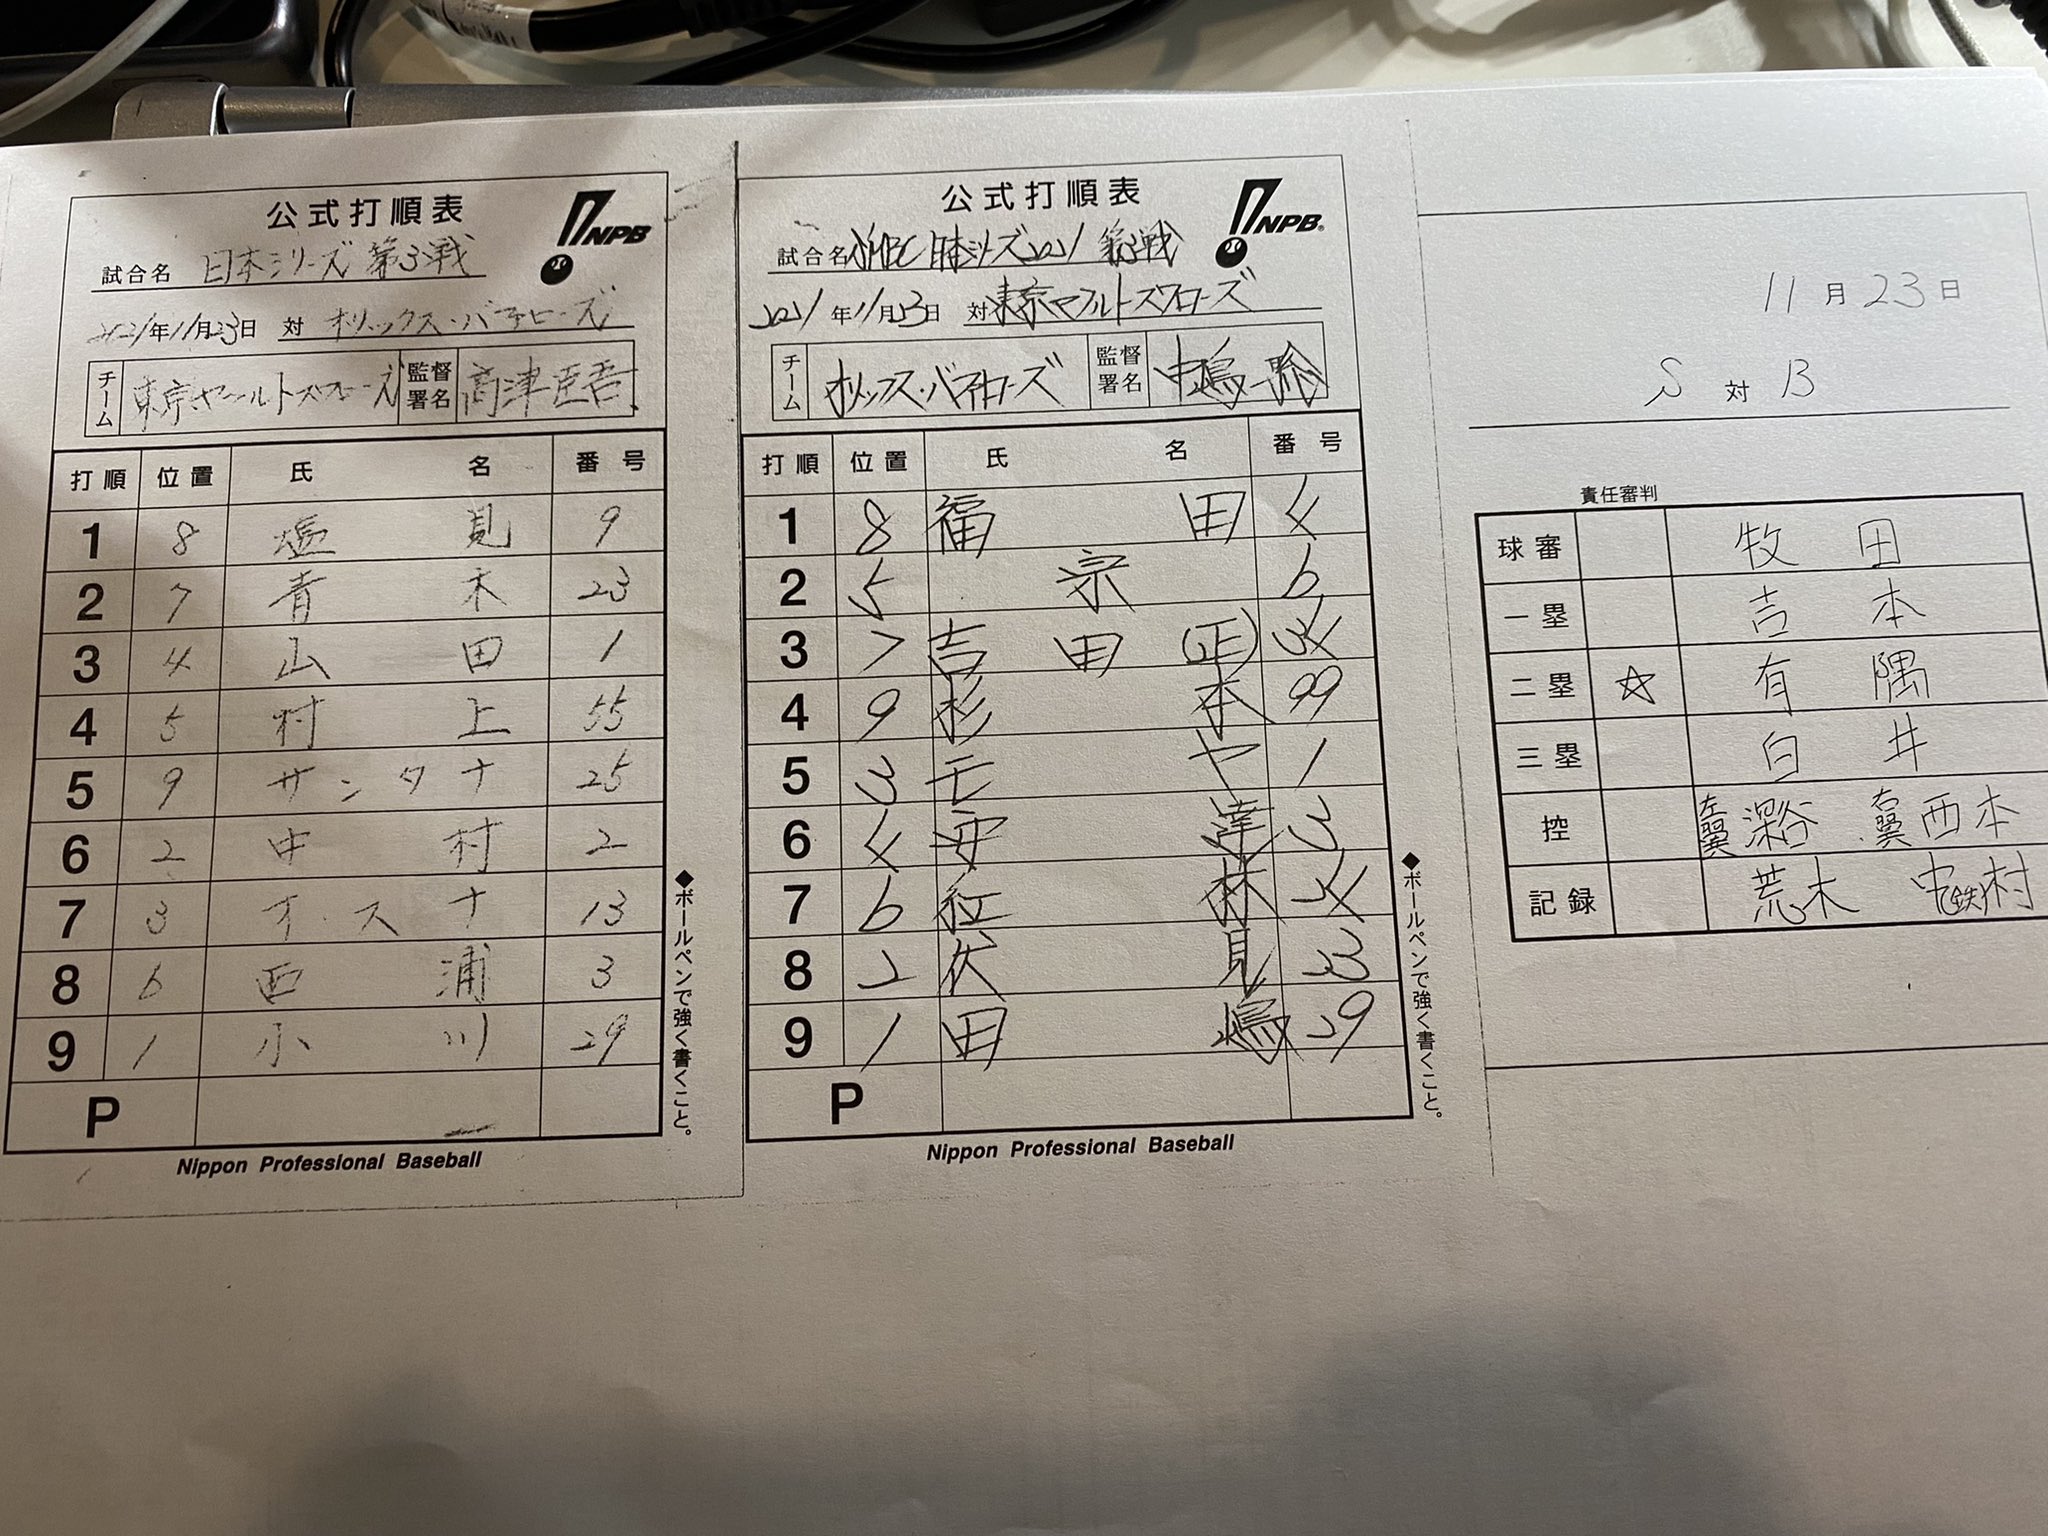 公式打順表
NPB
試合名 日本シリーズ 第3戦
2021年11月23日 対 オリックス・バファローズ
チーム 東京ヤクルトスワローズ 監督署名 高津臣吾
打順 位置 氏名 番号
1 8 塩見 9
2 7 青木 23
3 4 山田 1
4 5 村上 55
5 9 サンタナ 25
6 2 中村 2
7 3 オスナ 13
8 6 西浦 3
9 1 小川 29
P
◆ボールペンで強く書くこと。
Nippon Professional Baseball
公式打順表
NPB
試合名 SMBC日本シリーズ2021 第3戦
2021年11月23日 対 東京ヤクルトスワローズ
チーム オリックス・バファローズ 監督署名 中嶋 聡
打順 位置 氏名 番号
1 8 福田 4
2 5 宗 6
3 7 吉田(正) 34
4 9 杉本 99
5 3 モヤ 1
6 4 安達 3
7 6 紅林 24
8 2 伏見 23
9 1 田嶋 29
P
◆ボールペンで強く書くこと。
Nippon Professional Baseball
11月23日
S 対 B
責任審判
球審 牧田
一塁 吉本
二塁 ☆ 有隅
三塁 白井
控 左翼 深谷 右翼 西本
記録 荒木 中村(鉄)